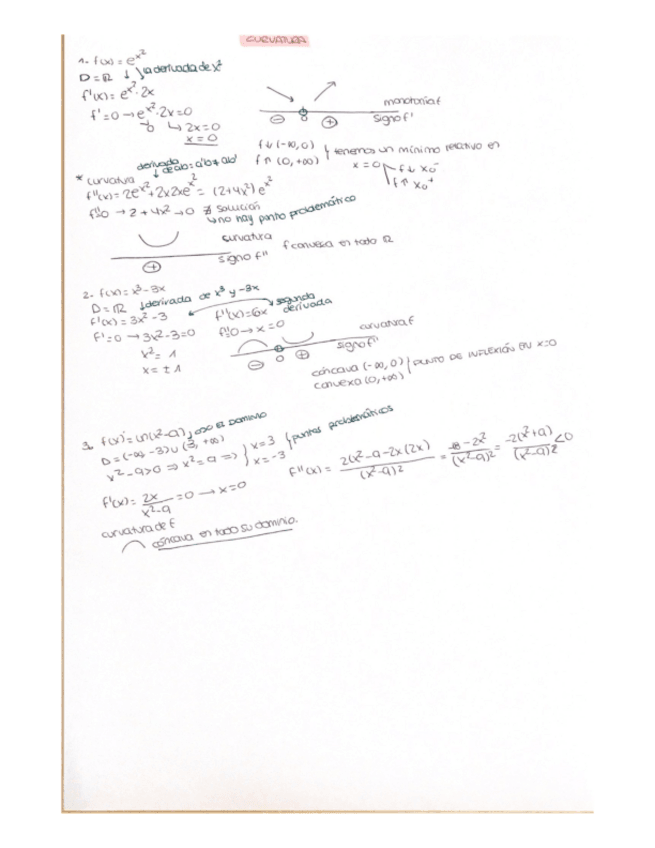 CURVATURA
1. f(x) = e^x²
D = ℝ ↓ ↘ la derivada de x²
f'(x) = e^x² · 2x
f' = 0 → e^x² · 2x = 0
↳ 2x = 0
x = 0
monotonía f
signo f'
⊖ 0 ⊕
f ↓ (-∞, 0)
f ↑ (0, +∞)
tenemos un mínimo relativo en
x = 0
f ↓ x₀⁻
f ↑ x₀⁺
derivada
↓ de ab = a'b + ab'
* curvatura
f''(x) = 2e^x² + 2x2xe^x² = (2+4x²) e^x²
f''=0 → 2 + 4x² = 0 ∄ solución
↳ no hay punto problemático
curvatura
signo f''
⊕
f convexa en todo ℝ
2. f(x) = x³ - 3x
D = ℝ ↓ derivada de x³ y -3x
f'(x) = 3x² - 3
f' = 0 → 3x² - 3 = 0
x² = 1
x = ± 1
segunda
derivada
f''(x) = 6x
f''=0 → x = 0
curvatura f
signo f''
⊖ 0 ⊕
cóncava (-∞, 0)
convexa (0, +∞)
PUNTO DE INFLEXIÓN EN x=0
3. f(x) = ln(x²-9) ¡OJO EL DOMINIO
D = (-∞ -3) ∪ (3, +∞)
x² - 9 > 0 ⇒ x² = 9 ⇒
x = 3
x = -3
puntos problemáticos
f'(x) = 2x / x²-9 = 0 → x = 0
f''(x) = 2(x²-9-2x(2x) / (x²-9)² = -18-2x² / (x²-9)² = -2(x²+9) / (x²-9)² < 0
curvatura de f
cóncava en todo su dominio.